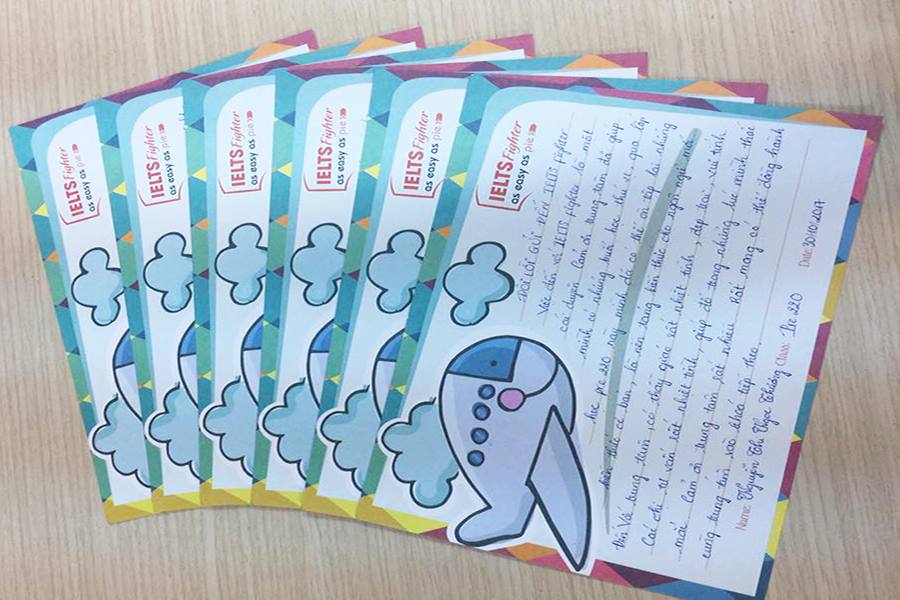 IELTS Fighter
as easy as pie
IELTS Fighter
as easy as pie
IELTS Fighter
as easy as pie
IELTS Fighter
as easy as pie
IELTS Fighter
as easy as pie
IELTS Fighter
as easy as pie
ĐÔI LỜI GỬI ĐẾN IELTS Fighter
Việc đến với IELTS Fighter là một
cái duyên. Cảm ơn trung tâm đã giúp
mình có những buổi học thú vị, qua lớp
học pre 220 này mình đã có thể ôn tập lại những
kiến thức cơ bản, là nền tảng kiến thức cho ngôn ngữ mới.
Đến với trung tâm có thầy giáo rất nhiệt tình, đẹp trai, vui tính.
Các chị tư vấn rất nhiệt tình, giúp đỡ trong những lúc mình thắc
mắc. Cảm ơn trung tâm rất nhiều. Rất mong có thể đồng hành
cùng trung tâm vào khóa tiếp theo.
Name: Nguyễn Thị Ngọc Class: Pre 220 Date: 30/10/2017